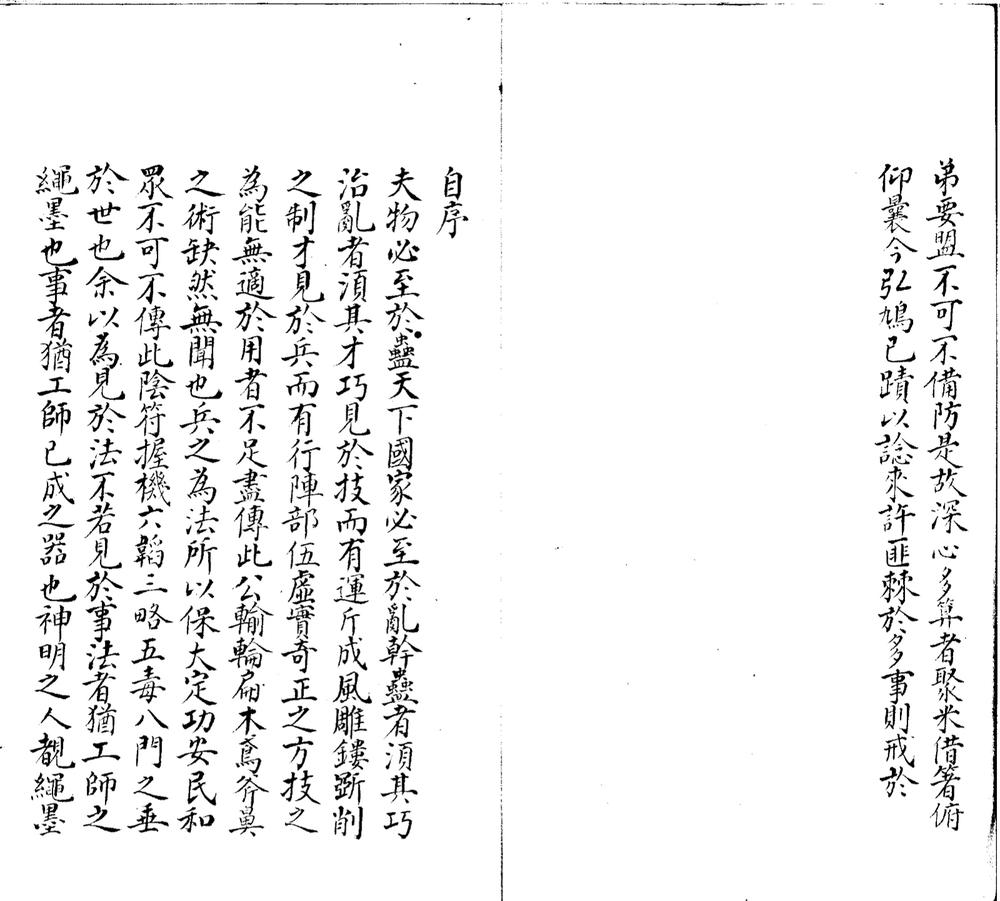 弟要盟不可不備防是故深心多算者聚米借箸俯
仰曩今弘鳩已蹟以諗來許匪棘於多事則戒於
自序
夫物必至於蠱天下國家必至於亂幹蠱者湏其巧
治亂者湏其才巧見於技而有運斤成風雕鏤斲削
之制才見於兵而有行陣部伍虛實奇正之方技之
為能無適於用者不足盡傳此公輸輪扁木鳶斧鼻
之術缺然無聞也兵之為法所以保大定功安民和
眾不可不傳此陰符握機六韜三略五毒八門之垂
於世也余以為見於法不若見於事法者猶工師之
繩墨也事者猶工師已成之器也神明之人覩繩墨